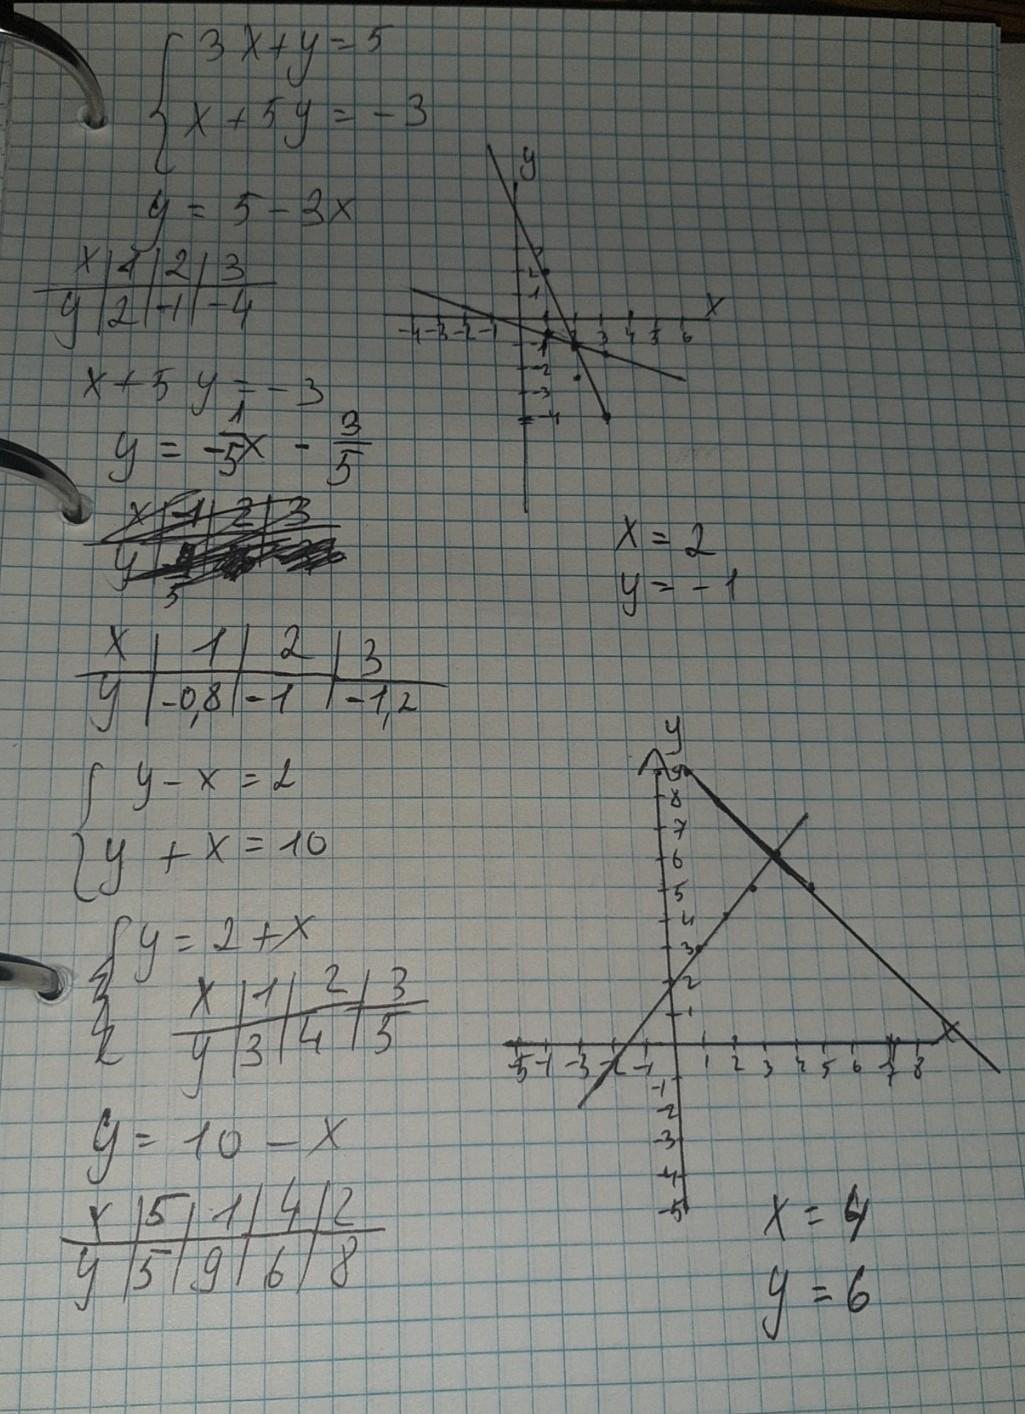 3x+y=5
x+5y=-3
y=5-3x
x|1|2|3
y|2|-1|-4
x+5y=-3
y=-1/5x-3/5
x|1|2|3
y
x=2
y=-1
x|1|2|3
y|-0,8|-1|-1,2
y-x=2
y+x=10
y=2+x
x|1|2|3
y|3|4|5
y=10-x
x|5|1|4|2
y|5|9|6|8
y
2
1
-4 -3 -2 -1 2 3 4 5 6
x
-1
-2
-3
-4
y
9
8
7
6
5
4
3
2
1
-5 -1 -3 -2 -1 1 2 3 4 5 6 7 8
x
-1
-2
-3
-4
-5
x=4
y=6